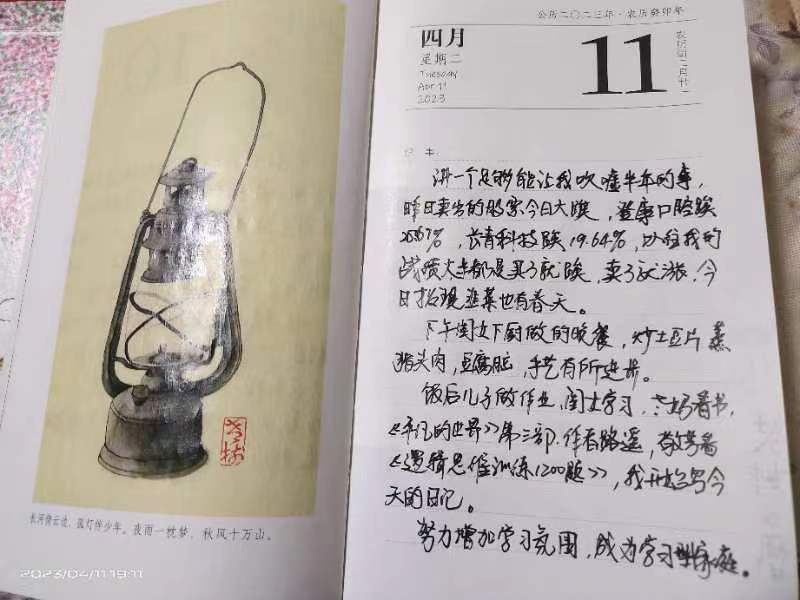 公历二〇二三年·农历癸卯年
四月
星期二
Tuesday
Apr.11
2023
11
农历闰二月廿一
讲一个足够能让我吹嘘半年的事，
昨日卖出的股票今日大跌，登康口腔跌
%，长青科技跌19.64%，以往我的
战绩大多都是买了就跌，卖了就涨，今
日才发现韭菜也有春天。
下午闺女下厨做的晚餐，炒土豆片 蒸
猪头肉，豆腐脑，手艺有所进步。
饭后儿子做作业，闺女学习，妈看书，
《平凡的世界》第三部，作者路遥，我开始写今
《逻辑思维训练1200题》
天的日记。
努力增加学习氛围，成为学习型家庭。
孤灯伴少年。夜雨一枕梦，秋风十万山。
2023/04/11 19:11